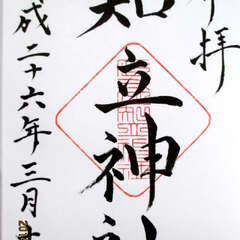 拝
知立神社
成二十六年三月